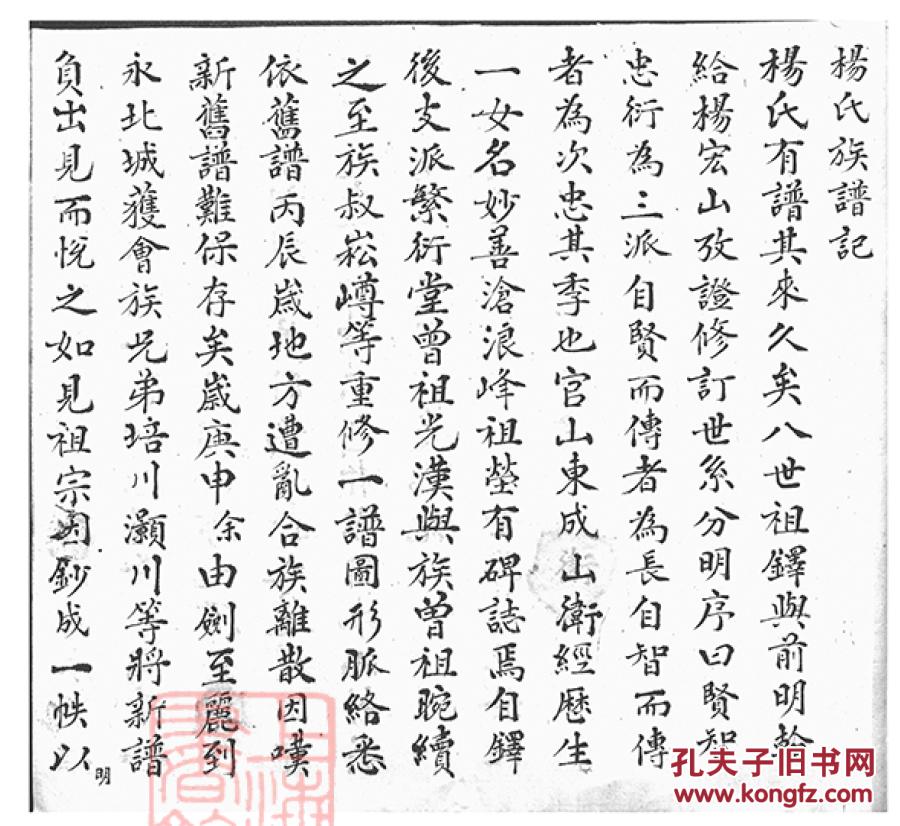 楊氏族譜記
楊氏有譜其來久矣八世祖鐸與前明幹
給楊宏山攷證修訂世系分明序曰賢智
忠衍為三派自賢而傳者為長自智而傳
者為次忠其季也官山東成山衛經歷生
一女名妙善滄浪峰祖塋有碑誌焉自鐸
後支派繁衍堂曾祖光漢與族曾祖晼續
之至族叔崧嶟等重修一譜圖形脈絡悉
依舊譜丙辰歲地方遭亂合族離散因嘆
新舊譜難保存矣歲庚申余由劍至麗到
永北城獲會族兄弟培川灝川等將新譜
負出見而悅之如見祖宗因鈔成一帙以
明
孔夫子旧书网
www.kongfz.com